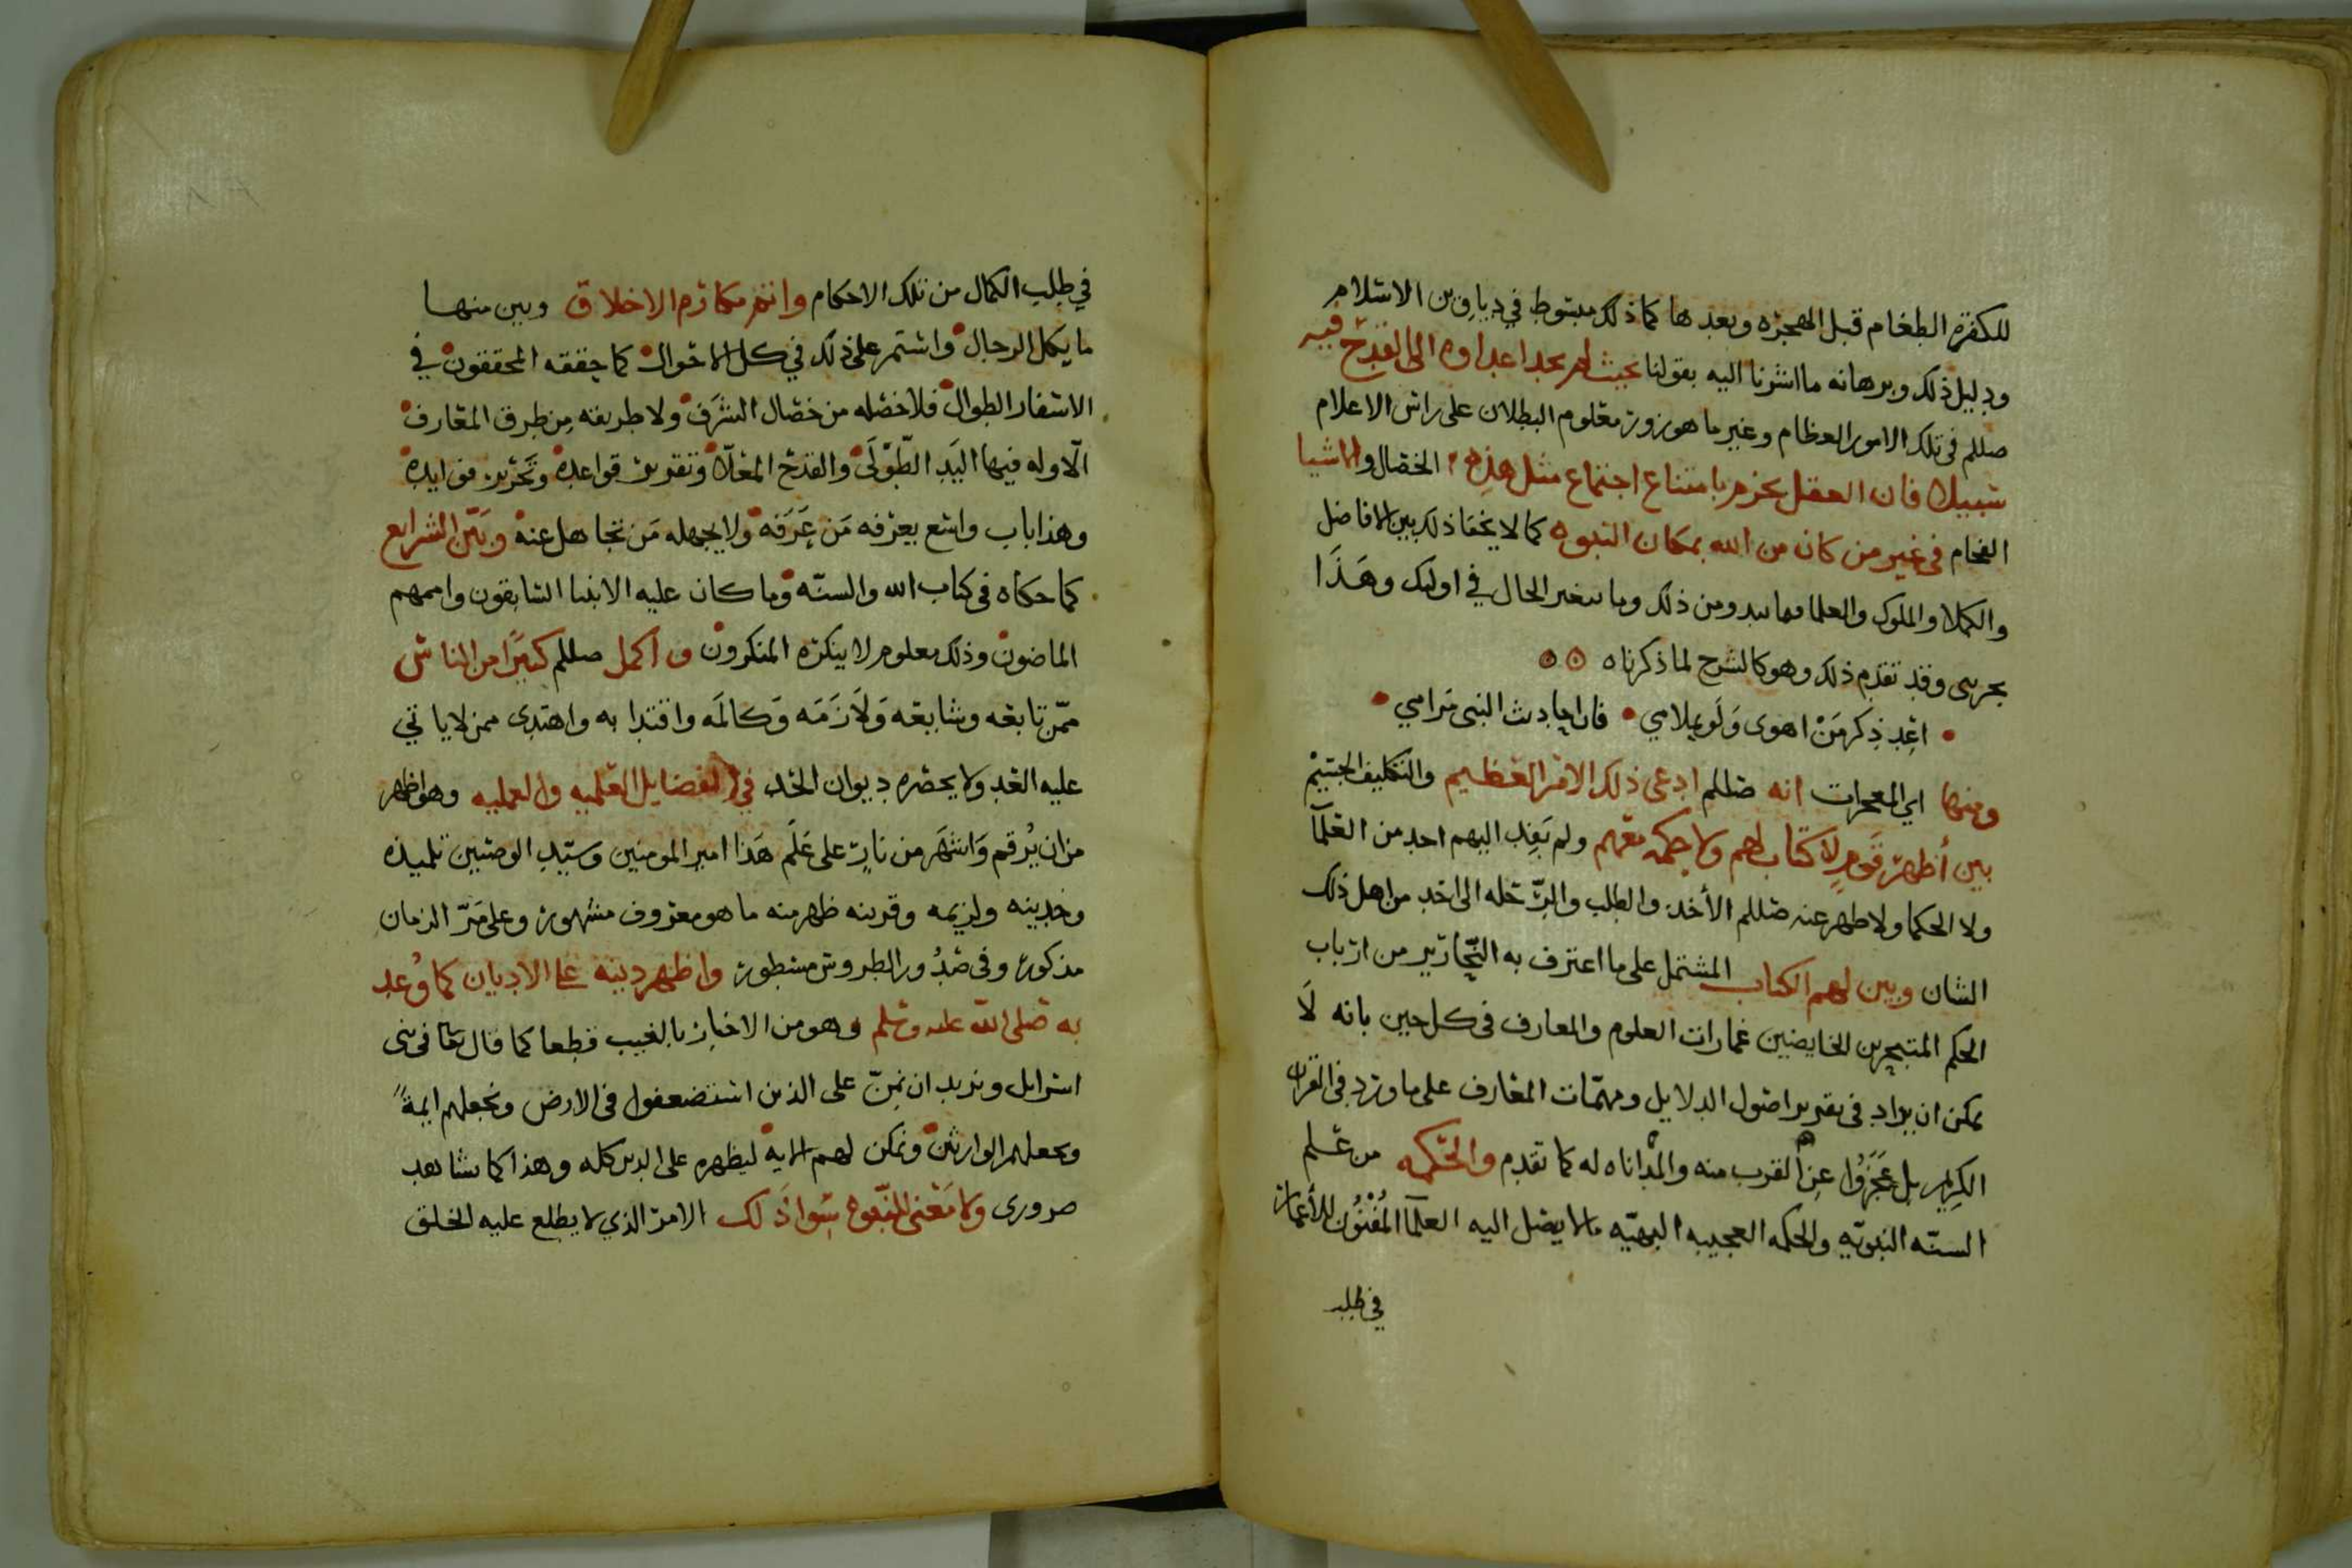 للكفرة الطغام قبل الهجره وبعدها كما ذلك مبسوط في دواوين الاسلام
ودليل ذلك وبرهانه ما اشرنا اليه بقولنا بحيث لم يجد اعداوه الى القدح فيه
صللم فى تلك الامور العظام وغير ما هو زور معلوم البطلان على راس الاعلام
سبيلا فان العقل يجزم بامتناع اجتماع مثل هذه الخصال والاشيا
الفخام فى غير من كان من الله بمكان النبوه كما لا يخفا ذلك بين الافاضل
والكملا والملوك والعلما فما يبدو من ذلك وما يتغير الحال في اوليك وهذا
وقد تقدم ذلك وهو كالشرح لما ذكرناه
اعد ذكر مَنْ اهوى وَلَو بملامي • فان احاديث النبى مَرامي
ومنها اي المعجزات انه صللم ادعى ذلك الامر العظيم والتكليف الجسيم
بين أظهر قومٍ لا كتاب لهم ولا حكمه معهم ولم يَفِد اليهم احد من العلمآ
ولا الحكما ولا ظهر عنه صللم الأخذ والطلب والرِّحله الى احد من اهل ذلك
الشان وبين لهم الكتاب المشتمل على ما اعترف به النَّحارير من ارباب
الحكم المتبحرين الخايضين غمارات العلوم والمعارف فى كل حين بانه لَا
يمكن ان يزاد فى تقرير اصول الدلايل ومهمّات المعارف على ما ورد فى القران
الكريم بل عَجَزُوا عن القرب منه والمداناه له كما تقدم والحكمه من علم
السنّه النبويّه والحكمه العجيبه البهيّه ما لا يصل اليه العلمآ المُفْنُون للأعمار
في طلب
في طلب الكمال من تلك الاحكام واتم مكارم الاخلاق وبين منها
ما يكمل الرجال واستمر على ذلك في كل الاحوال كما حققه المحققون في
الاسفار الطوال فلا خصله من خصال الشرَف ولا طريقه مِن طرق المعارف
الّا وله فيها اليَد الطّوْلَى والقدح المعلّا وتقويض قواعده وتَحْرير فوايده
وهذا باب واسع يعرفه مَن عَرَفه ولا يجهله مَن تجاهل عنه وبَيّن الشرايع
كما حكاه فى كتاب الله والسنّه وما كان عليه الانبيا السابقون واممهم
الماضون وذلك معلوم لا ينكره المنكرون واكمل صللم كثيرًا من الناس
ممّن تابعه وشايعه وَلَازَمَه وَكالمَه واقتدا به واهتدى ممن لا ياتي
عليه العد ولا يحصره ديوان الحد في الفضايل العلميه والعمليه وهو اظهر
من ان يُرقم وَاشهَر من نارٍ على عَلَم هَذا امير المومنين وسَيّد الوصيين تلميذه
وخدينه ولزيمه وقرينه ظهر منه ما هو معروف مشهور وعلى مَرّ الزمان
مذكور وفى صُدُور الطروس مسطور واظهر دينه على الاديان كما وُعد
به صلى الله عليه وسلم وهو من الاخبار بالغيب قطعا كما قال تعا فى بنى
اسرايل ونريد ان نمنّ على الذين استضعفوا فى الارض ونجعلهم ايمةً
ونجعلهم الوارثين ونمكن لهم الايه ليظهره على الدين كله وهذا كما شاهد
ضرورى ولا مَعْنى للنّبوه سِوا ذَلك الامر الذي لا يطلع عليه الخلق